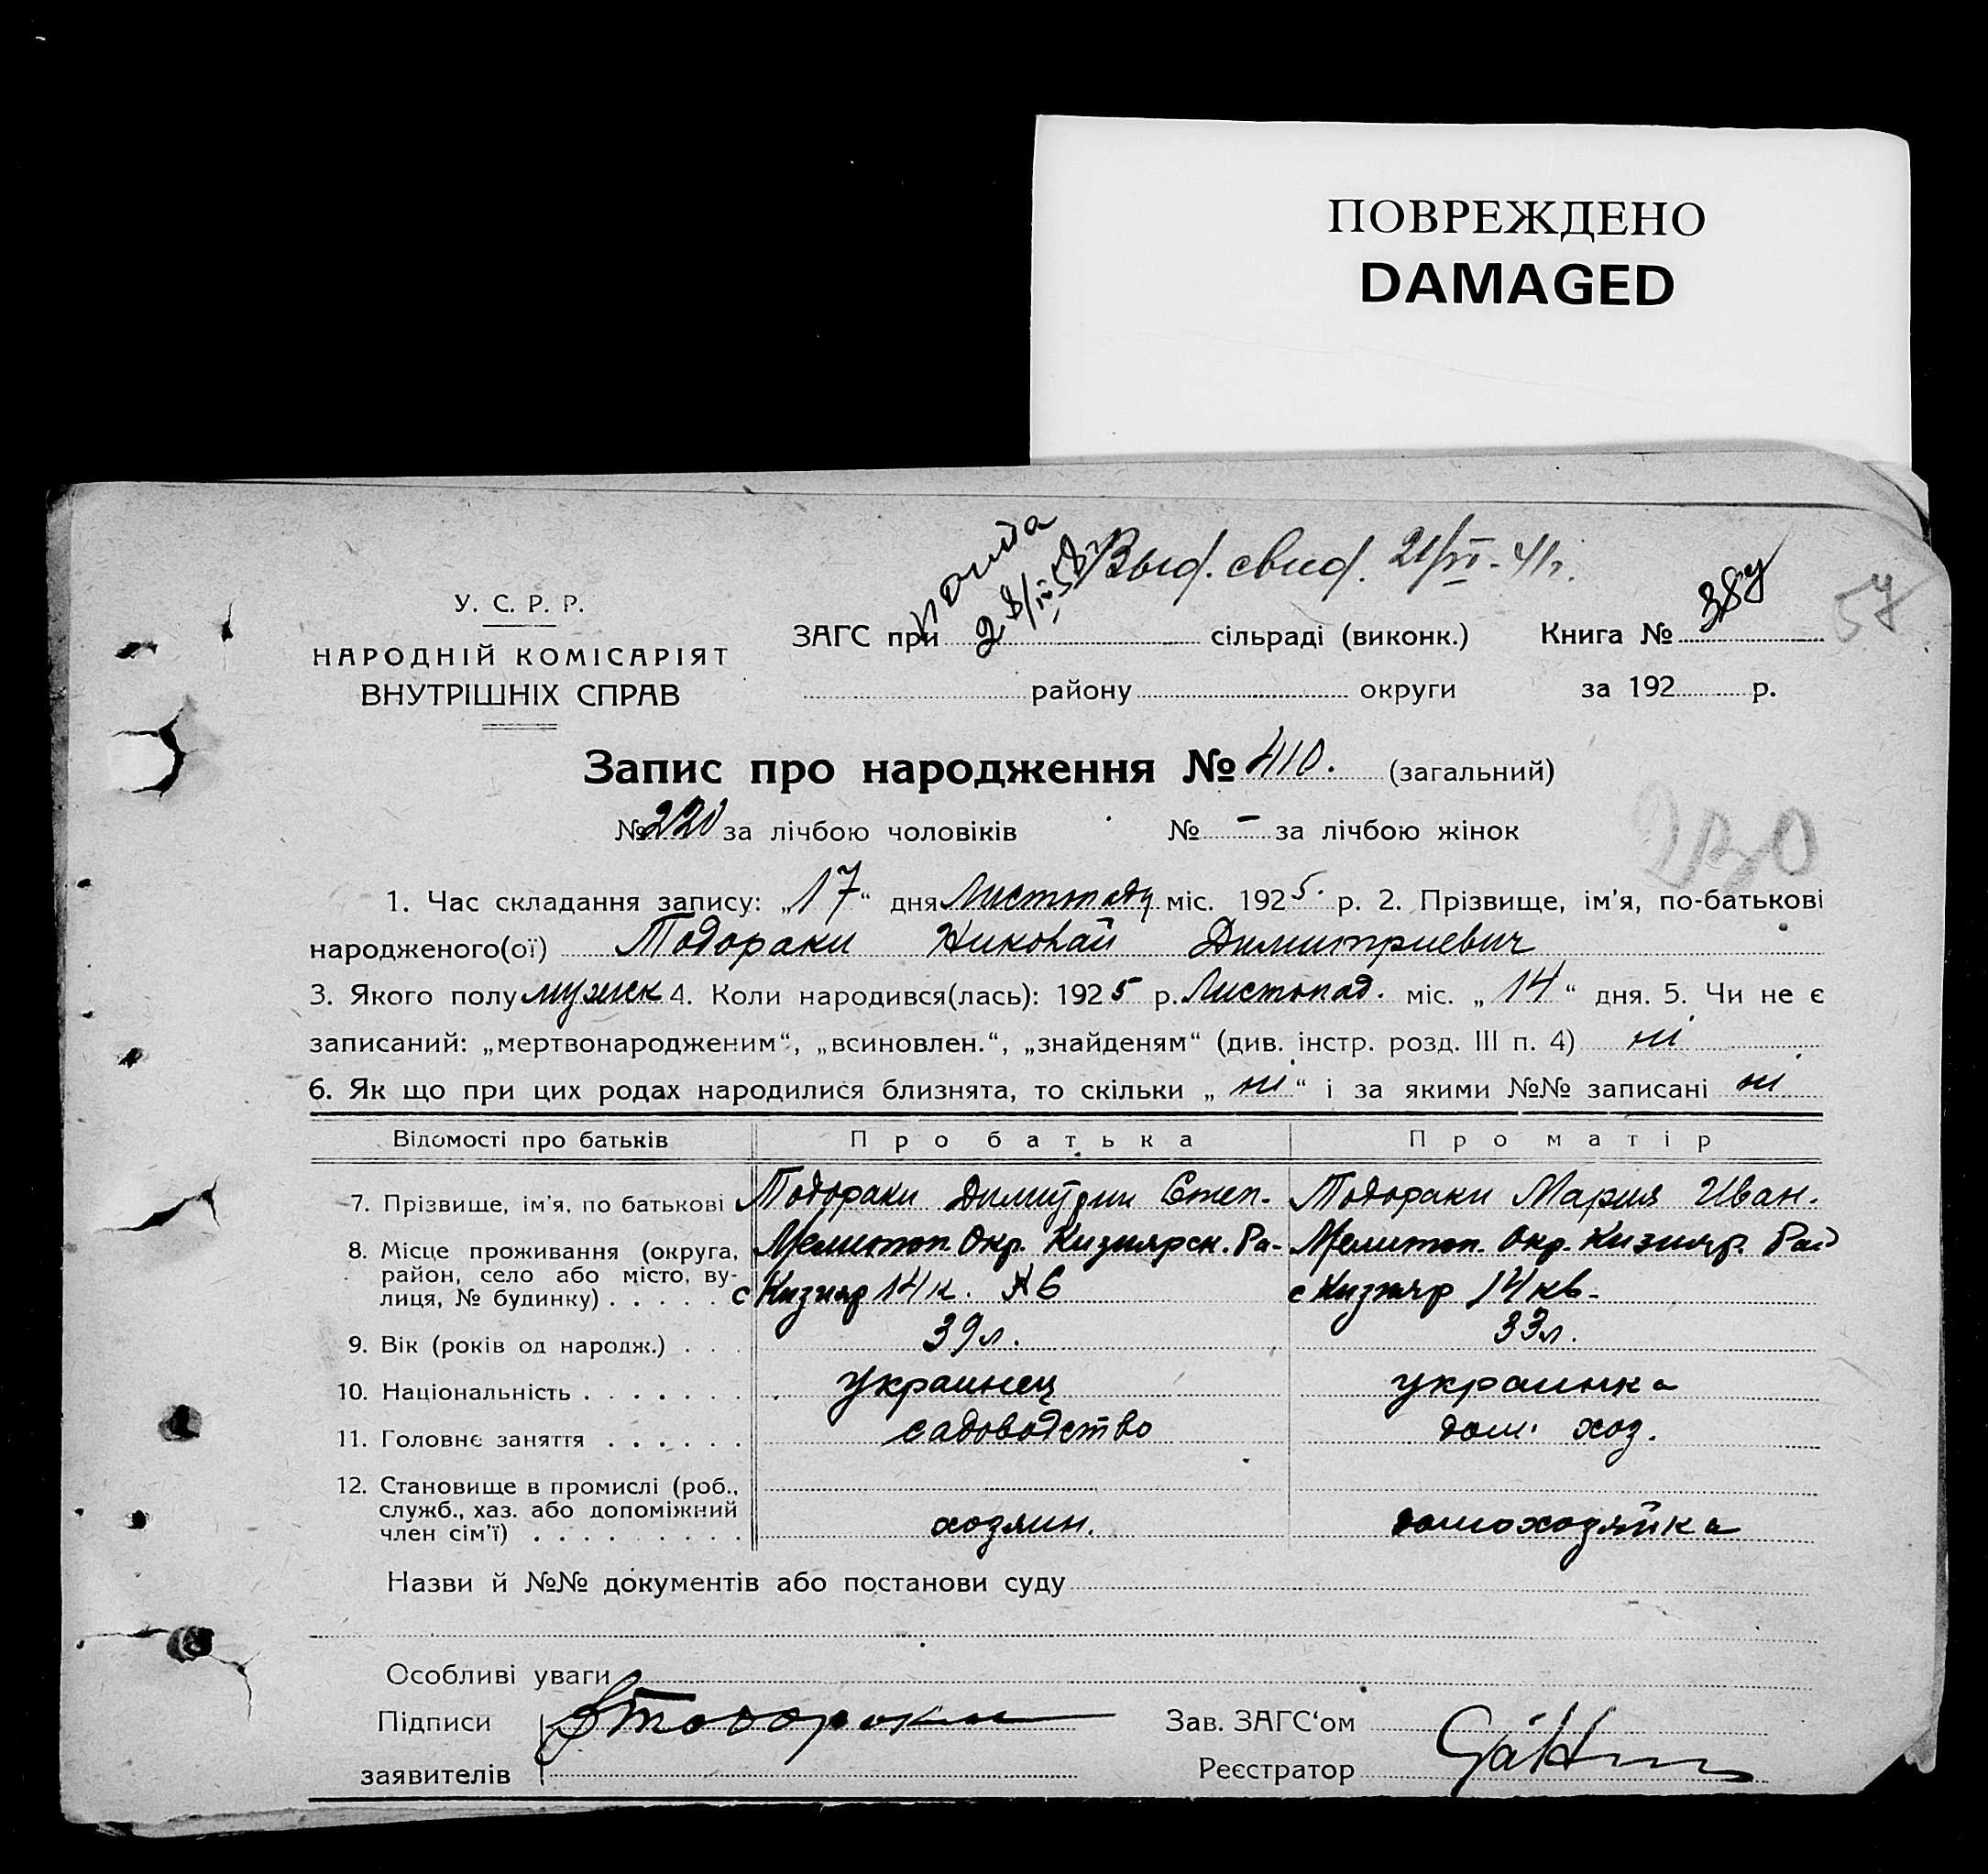 ПОВРЕЖДЕНО
DAMAGED
Выд. свид. 21/VI - 41г.
57
У. С. Р. Р.
НАРОДНІЙ КОМІСАРІЯТ
ВНУТРІШНІХ СПРАВ
ЗАГС при сільраді (виконк.) Книга №
району округи за 192 р.
Запис про народження № 410. (загальний)
№ 220 за лічбою чоловіків № – за лічбою жінок
1. Час складання запису: „17“ дня Листопаду міс. 1925 р. 2. Прізвище, ім'я, по-батькові
народженого(ої) Тодораки Николай Димитриевич
3. Якого полу мужск 4. Коли народився(лась): 1925 р. Листопад. міс. „14“ дня. 5. Чи не є
записаний: „мертвонародженим“, „всиновлен.“, „знайденям“ (див. інстр. розд. III п. 4) ні
6. Як що при цих родах народилися близнята, то скільки „ні“ і за якими №№ записані ні
Відомості про батьків Про батька Про матір
7. Прізвище, ім'я, по батькові Тодораки Димитрии Степ. Тодораки Мария Иван.
8. Місце проживання (округа, Мелитоп. Окр. Кизиярск. Ра- Мелитоп. Окр. Кизияр. Рай
район, село або місто, ву-
лиця, № будинку) . . . . . с Кизияр 14 к. №6 с Кизияр 14 кв.
9. Вік (років од народж.) . . . 39 л. 33 л.
10. Національність . . . . . . . украинец украинка
11. Головне заняття . . . . . . садоводство дом. хоз.
12. Становище в промислі (роб.,
служб., хаз. або допоміжний
член сім'ї) . . . . . . . . . хозяин. домохозяйка
Назви й №№ документів або постанови суду
Особливі уваги
Підписи Тодораки Зав. ЗАГС'ом
заявителів Реєстратор